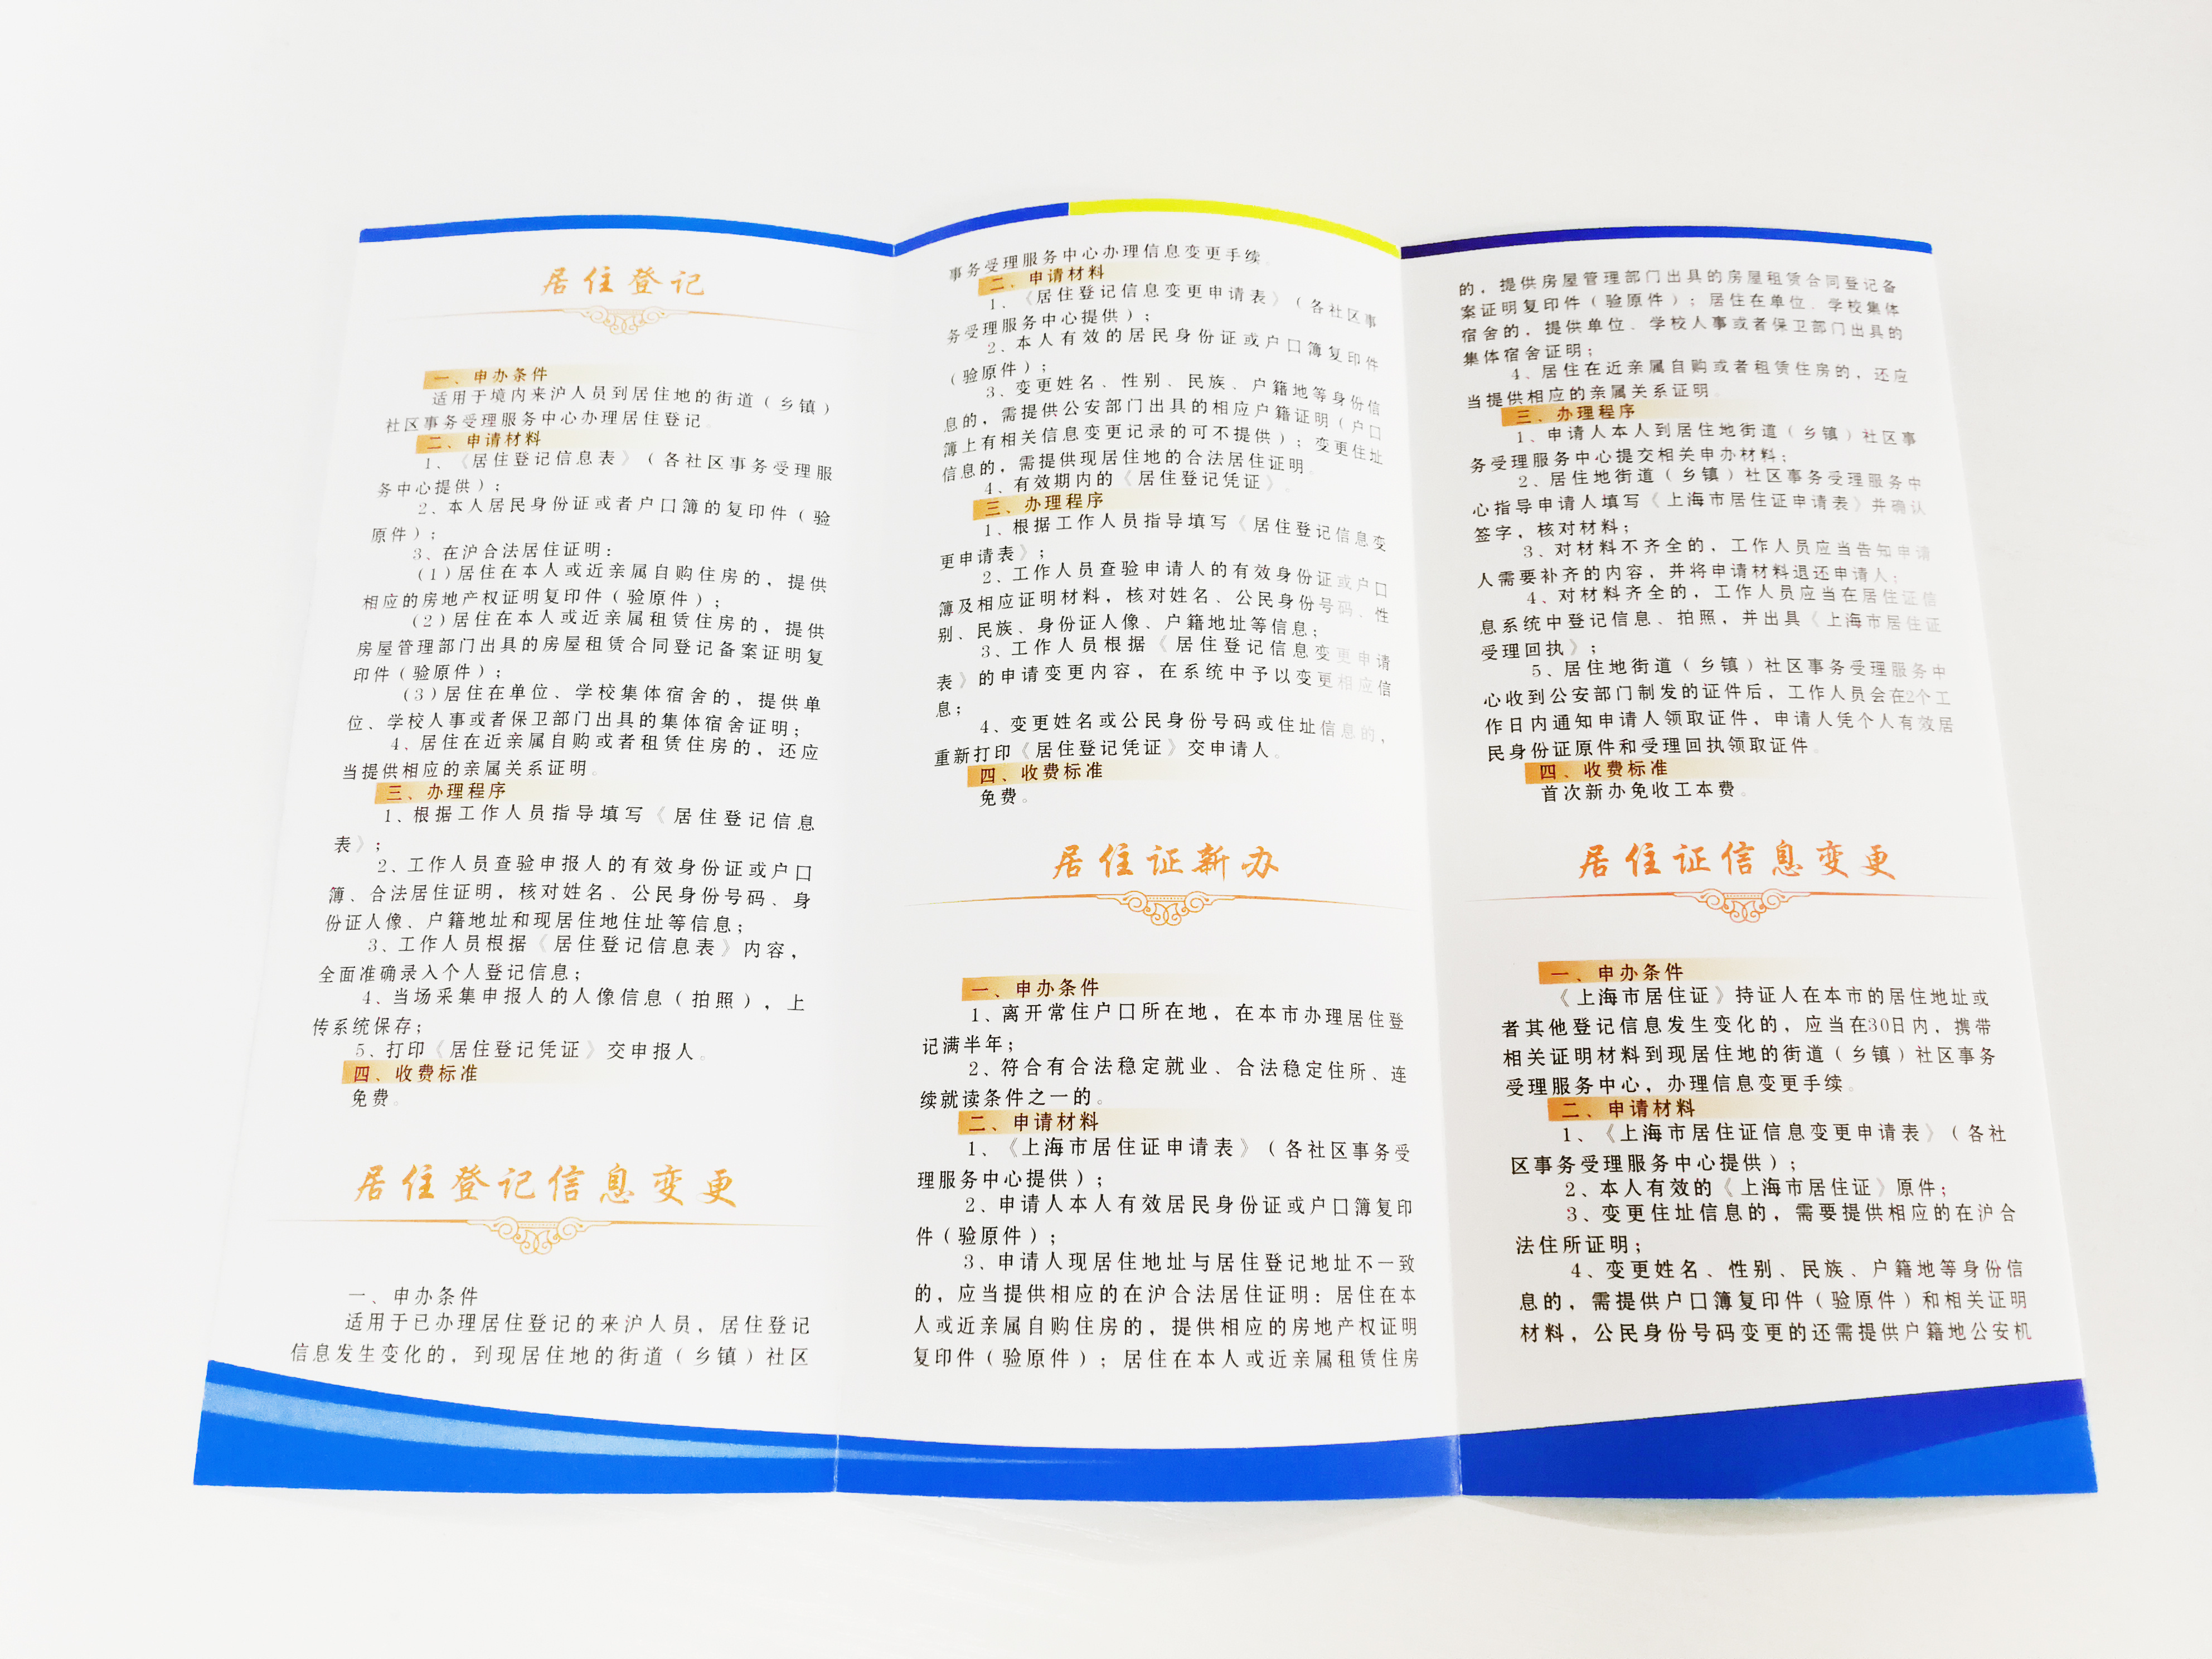 居住登记
一、申办条件
适用于境内来沪人员到居住地的街道（乡镇）
社区事务受理服务中心办理居住登记。
二、申请材料
1、《居住登记信息表》（各社区事务受理服
务中心提供）；
2、本人居民身份证或者户口簿的复印件（验
原件）；
3、在沪合法居住证明：
（1）居住在本人或近亲属自购住房的，提供
相应的房地产权证明复印件（验原件）；
（2）居住在本人或近亲属租赁住房的，提供
房屋管理部门出具的房屋租赁合同登记备案证明复
印件（验原件）；
（3）居住在单位、学校集体宿舍的，提供单
位、学校人事或者保卫部门出具的集体宿舍证明；
4、居住在近亲属自购或者租赁住房的，还应
当提供相应的亲属关系证明。
三、办理程序
1、根据工作人员指导填写《居住登记信息
表》；
2、工作人员查验申报人的有效身份证或户口
簿、合法居住证明，核对姓名、公民身份号码、身
份证人像、户籍地址和现居住地住址等信息；
3、工作人员根据《居住登记信息表》内容，
全面准确录入个人登记信息；
4、当场采集申报人的人像信息（拍照），上
传系统保存；
5、打印《居住登记凭证》交申报人。
四、收费标准
免费。
居住登记信息变更
一、申办条件
适用于已办理居住登记的来沪人员，居住登记
信息发生变化的，到现居住地的街道（乡镇）社区
事务受理服务中心办理信息变更手续。
二、申请材料
1、《居住登记信息变更申请表》（各社区事
务受理服务中心提供）；
2、本人有效的居民身份证或户口簿复印件
（验原件）；
3、变更姓名、性别、民族、户籍地等身份信
息的，需提供公安部门出具的相应户籍证明（户口
簿上有相关信息变更记录的可不提供）；变更住址
信息的，需提供现居住地的合法居住证明。
4、有效期内的《居住登记凭证》。
三、办理程序
1、根据工作人员指导填写《居住登记信息变
更申请表》；
2、工作人员查验申请人的有效身份证或户口
簿及相应证明材料，核对姓名、公民身份号码、性
别、民族、身份证人像、户籍地址等信息；
3、工作人员根据《居住登记信息变更申请
表》的申请变更内容，在系统中予以变更相应信
息；
4、变更姓名或公民身份号码或住址信息的，
重新打印《居住登记凭证》交申请人。
四、收费标准
免费。
居住证新办
一、申办条件
1、离开常住户口所在地，在本市办理居住登
记满半年；
2、符合有合法稳定就业、合法稳定住所、连
续就读条件之一的。
二、申请材料
1、《上海市居住证申请表》（各社区事务受
理服务中心提供）；
2、申请人本人有效居民身份证或户口簿复印
件（验原件）；
3、申请人现居住地址与居住登记地址不一致
的，应当提供相应的在沪合法居住证明：居住在本
人或近亲属自购住房的，提供相应的房地产权证明
复印件（验原件）；居住在本人或近亲属租赁住房
的，提供房屋管理部门出具的房屋租赁合同登记备
案证明复印件（验原件）；居住在单位、学校集体
宿舍的，提供单位、学校人事或者保卫部门出具的
集体宿舍证明；
4、居住在近亲属自购或者租赁住房的，还应
当提供相应的亲属关系证明。
三、办理程序
1、申请人本人到居住地街道（乡镇）社区事
务受理服务中心提交相关申办材料；
2、居住地街道（乡镇）社区事务受理服务中
心指导申请人填写《上海市居住证申请表》并确认
签字，核对材料；
3、对材料不齐全的，工作人员应当告知申请
人需要补齐的内容，并将申请材料退还申请人；
4、对材料齐全的，工作人员应当在居住证信
息系统中登记信息、拍照，并出具《上海市居住证
受理回执》；
5、居住地街道（乡镇）社区事务受理服务中
心收到公安部门制发的证件后，工作人员会在2个工
作日内通知申请人领取证件，申请人凭个人有效居
民身份证原件和受理回执领取证件。
四、收费标准
首次新办免收工本费。
居住证信息变更
一、申办条件
《上海市居住证》持证人在本市的居住地址或
者其他登记信息发生变化的，应当在30日内，携带
相关证明材料到现居住地的街道（乡镇）社区事务
受理服务中心，办理信息变更手续。
二、申请材料
1、《上海市居住证信息变更申请表》（各社
区事务受理服务中心提供）；
2、本人有效的《上海市居住证》原件；
3、变更住址信息的，需要提供相应的在沪合
法住所证明；
4、变更姓名、性别、民族、户籍地等身份信
息的，需提供户口簿复印件（验原件）和相关证明
材料，公民身份号码变更的还需提供户籍地公安机